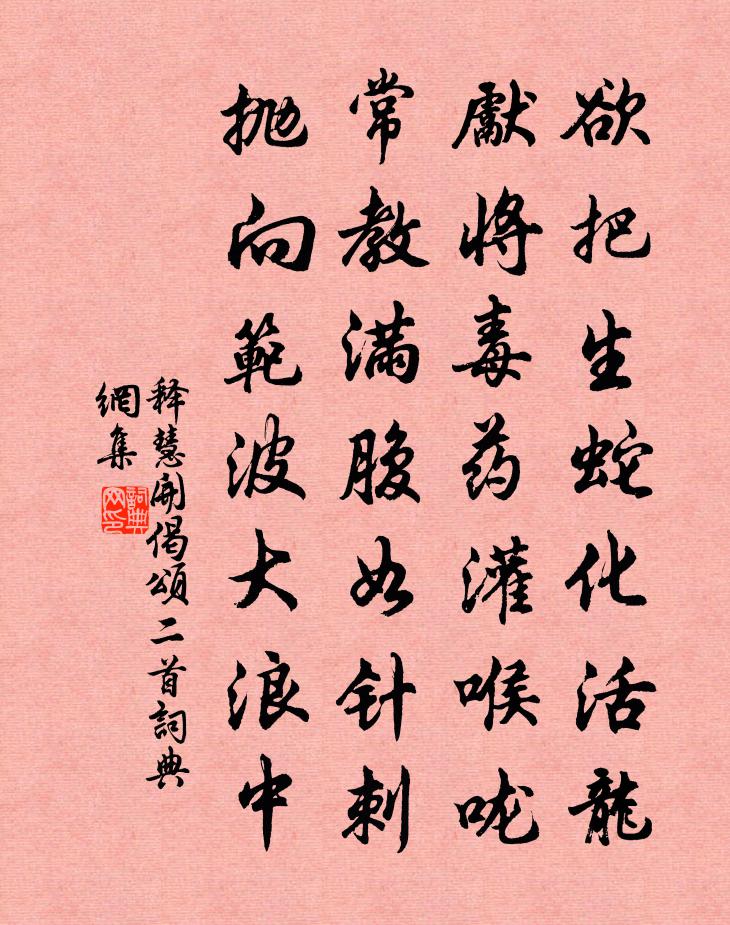 欲把生蛇化活龍
獻將毒药灌喉咙
常教滿腹如针刺
抛向範波大浪中
释慧開偈頌二首詞典
網集
詞典网印